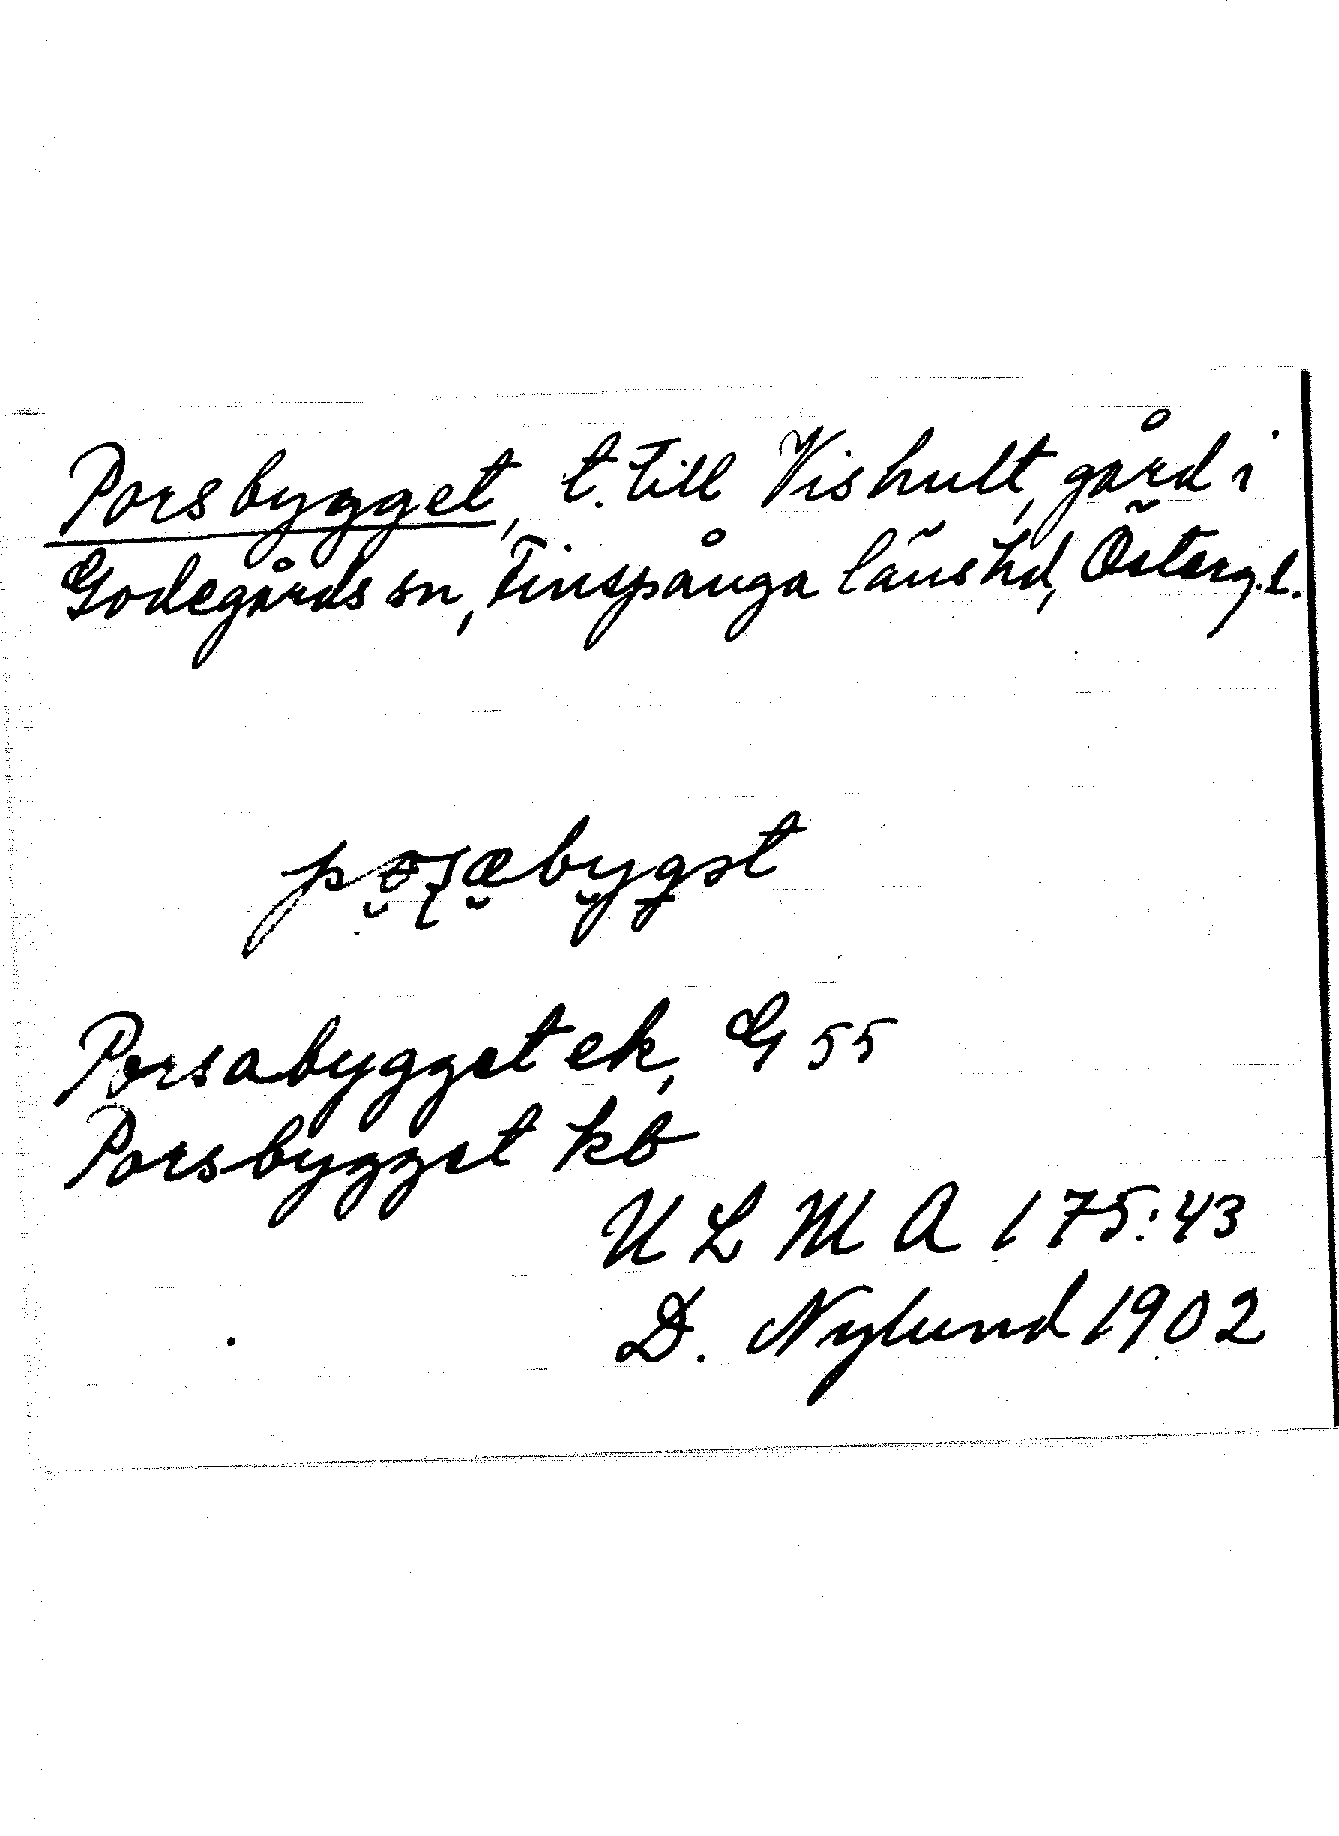 Porsbygget, t. till Vishult, gård i
Godegårds sn, Finspånga läns hd, Österg. l.
Porsabygget ek, G 55
Porsbygget kb
ULMA 175:43
D. Nylund 1902